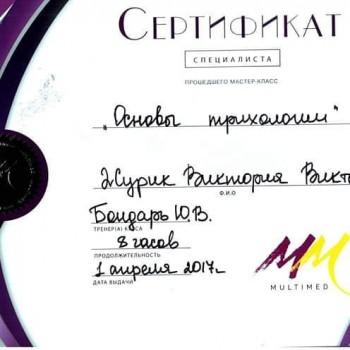 СЕРТИФИКАТ
СПЕЦИАЛИСТА
ПРОШЕДШЕГО МАСТЕР-КЛАСС
„Основы трихологии"
Журик Виктория Викт
Ф.И.О
Бондарь Ю.В.
ТРЕНЕР(А) КЛАССА
8 часов
ПРОДОЛЖИТЕЛЬНОСТЬ
1 апреля 2017г
ДАТА ВЫДАЧИ
MM
MULTIMED